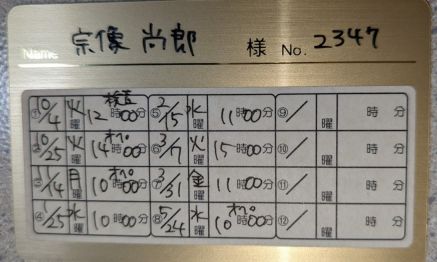 Name 宗像 尚郎 様 No. 2347
① 10/4 火曜 検査 12時00分 ⑤ 2/15 水曜 11時00分 ⑨ / 曜 時 分
② 10/25 火曜 オペ 14時00分 ⑥ 3/7 火曜 15時00分 ⑩ / 曜 時 分
③ 11/14 月曜 オペ 10時00分 ⑦ 3/31 金曜 11時00分 ⑪ / 曜 時 分
④ 1/25 水曜 10時00分 ⑧ 5/24 水曜 オペ 10時00分 ⑫ / 曜 時 分